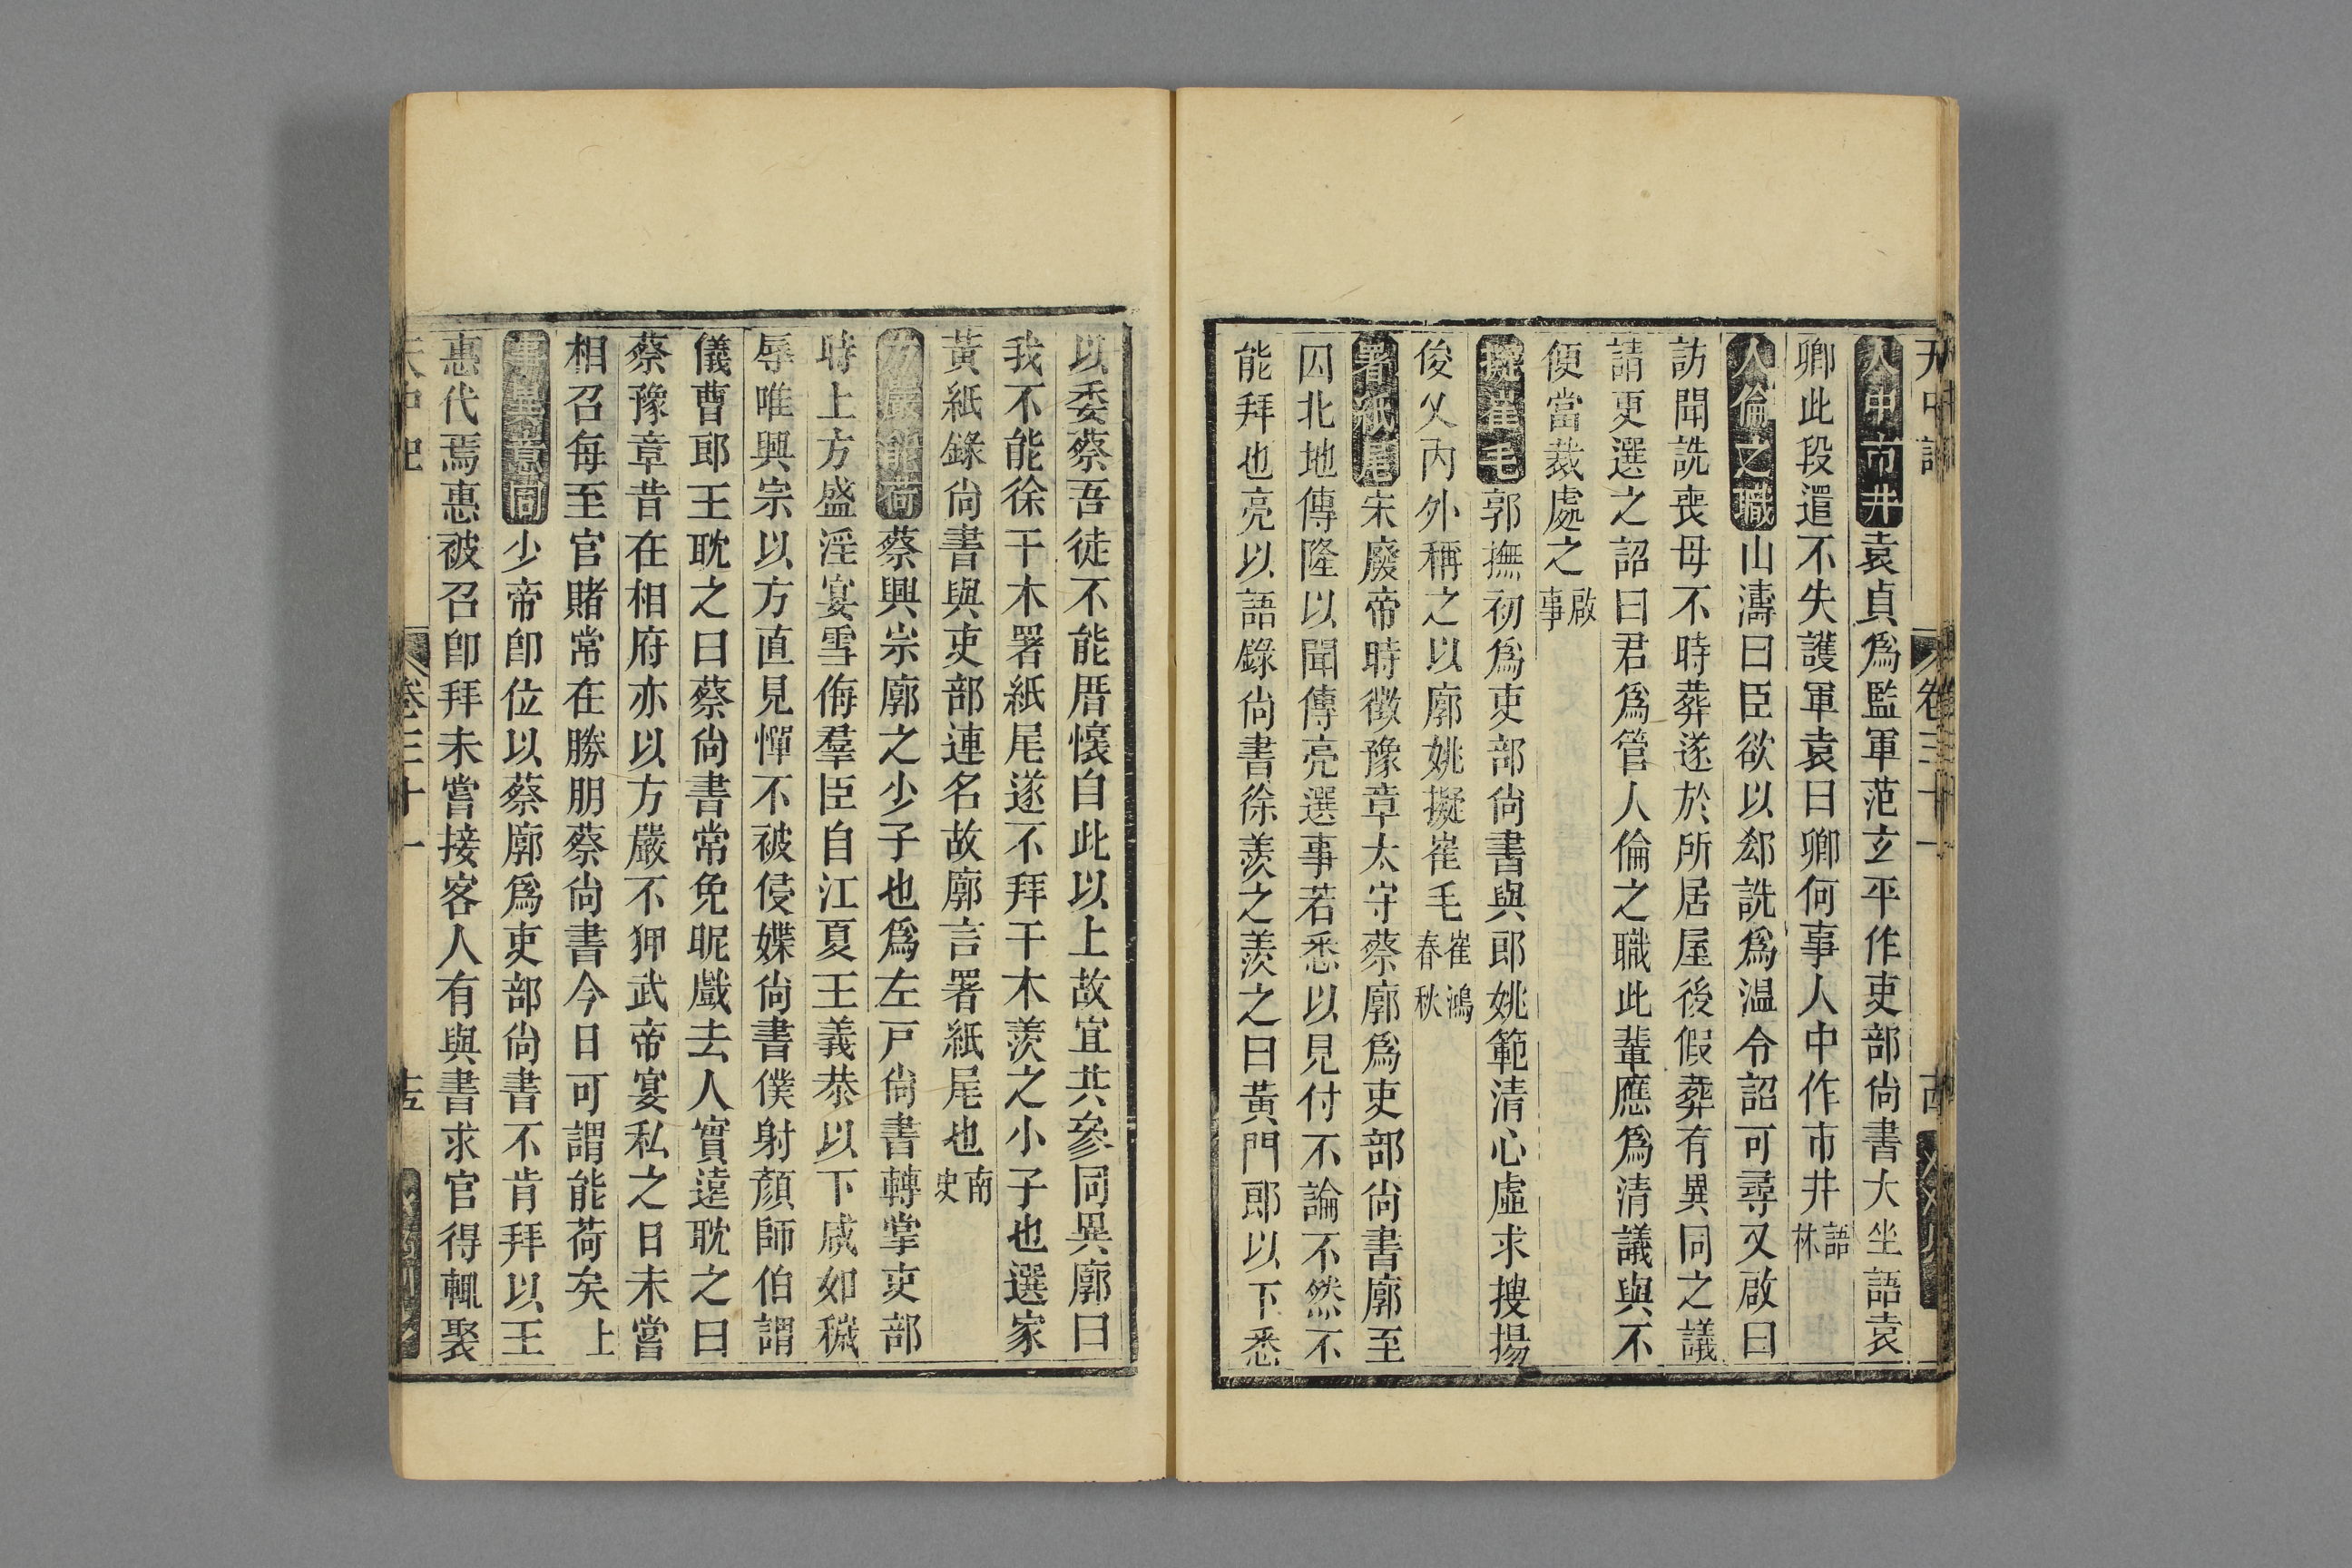 天中記 卷三十一
人中市井袁貞爲監軍范玄平作吏部尚書大坐語袁
卿此段還不失護軍袁曰卿何事人中作市井語林
人倫之職山濤曰臣欲以郄詵爲温令詔可尋又啟曰
訪聞詵喪母不時葬遂於所居屋後假葬有異同之議
請更選之詔曰君爲管人倫之職此輩應爲清議與不
便當裁處之啟事
擬崔毛郭撫初爲吏部尚書與郎姚範清心虛求搜揚
俊乂內外稱之以廓姚擬崔毛崔鴻春秋
署紙尾宋廢帝時徵豫章太守蔡廓爲吏部尚書廓至
因北地傳隆以聞傅亮選事若悉以見付不論不然不
能拜也亮以語錄尚書徐羨之羨之曰黃門郎以下悉
以委蔡吾徒不能厝懷自此以上故宜共參同異廓曰
我不能徐干木署紙尾遂不拜干木羨之小子也選家
黃紙錄尚書與吏部連名故廓言署紙尾也南史
方嚴能荷蔡興宗廓之少子也爲左戸尚書轉掌吏部
時上方盛淫宴雪侮羣臣自江夏王義恭以下咸如穢
辱唯興宗以方直見憚不被侵媟尚書僕射顏師伯謂
儀曹郎王耽之曰蔡尚書常免昵戲去人實遠耽之曰
蔡豫章昔在相府亦以方嚴不狎武帝宴私之日未嘗
相召每至官賭常在勝朋蔡尚書今日可謂能荷矣上
事異意同少帝卽位以蔡廓爲吏部尚書不肯拜以王
惠代焉惠被召卽拜未嘗接客人有與書求官得輒聚
天中記 卷三十一